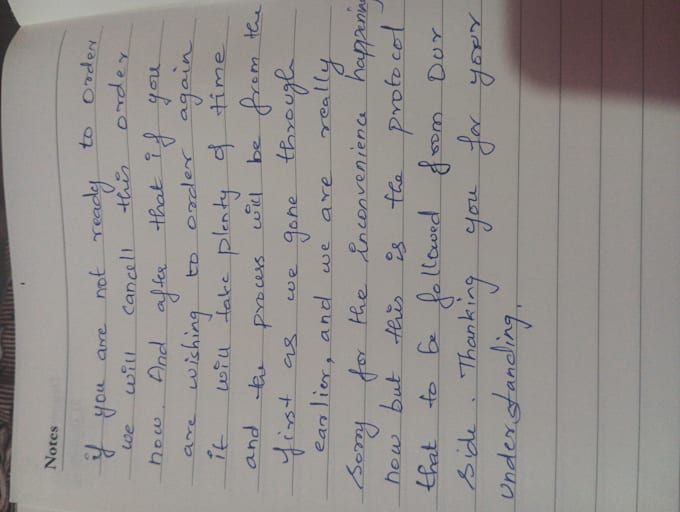 Notes
if you are not ready to order
we will cancell this order
now. And after that if you
are wishing to order again
it will take plenty of time
and the process will be from the
first as we gone through
earlier, and we are really
sorry for the inconvenience happening
now but this is the protocol
that to be followed from our
side. Thanking you for your
understanding.